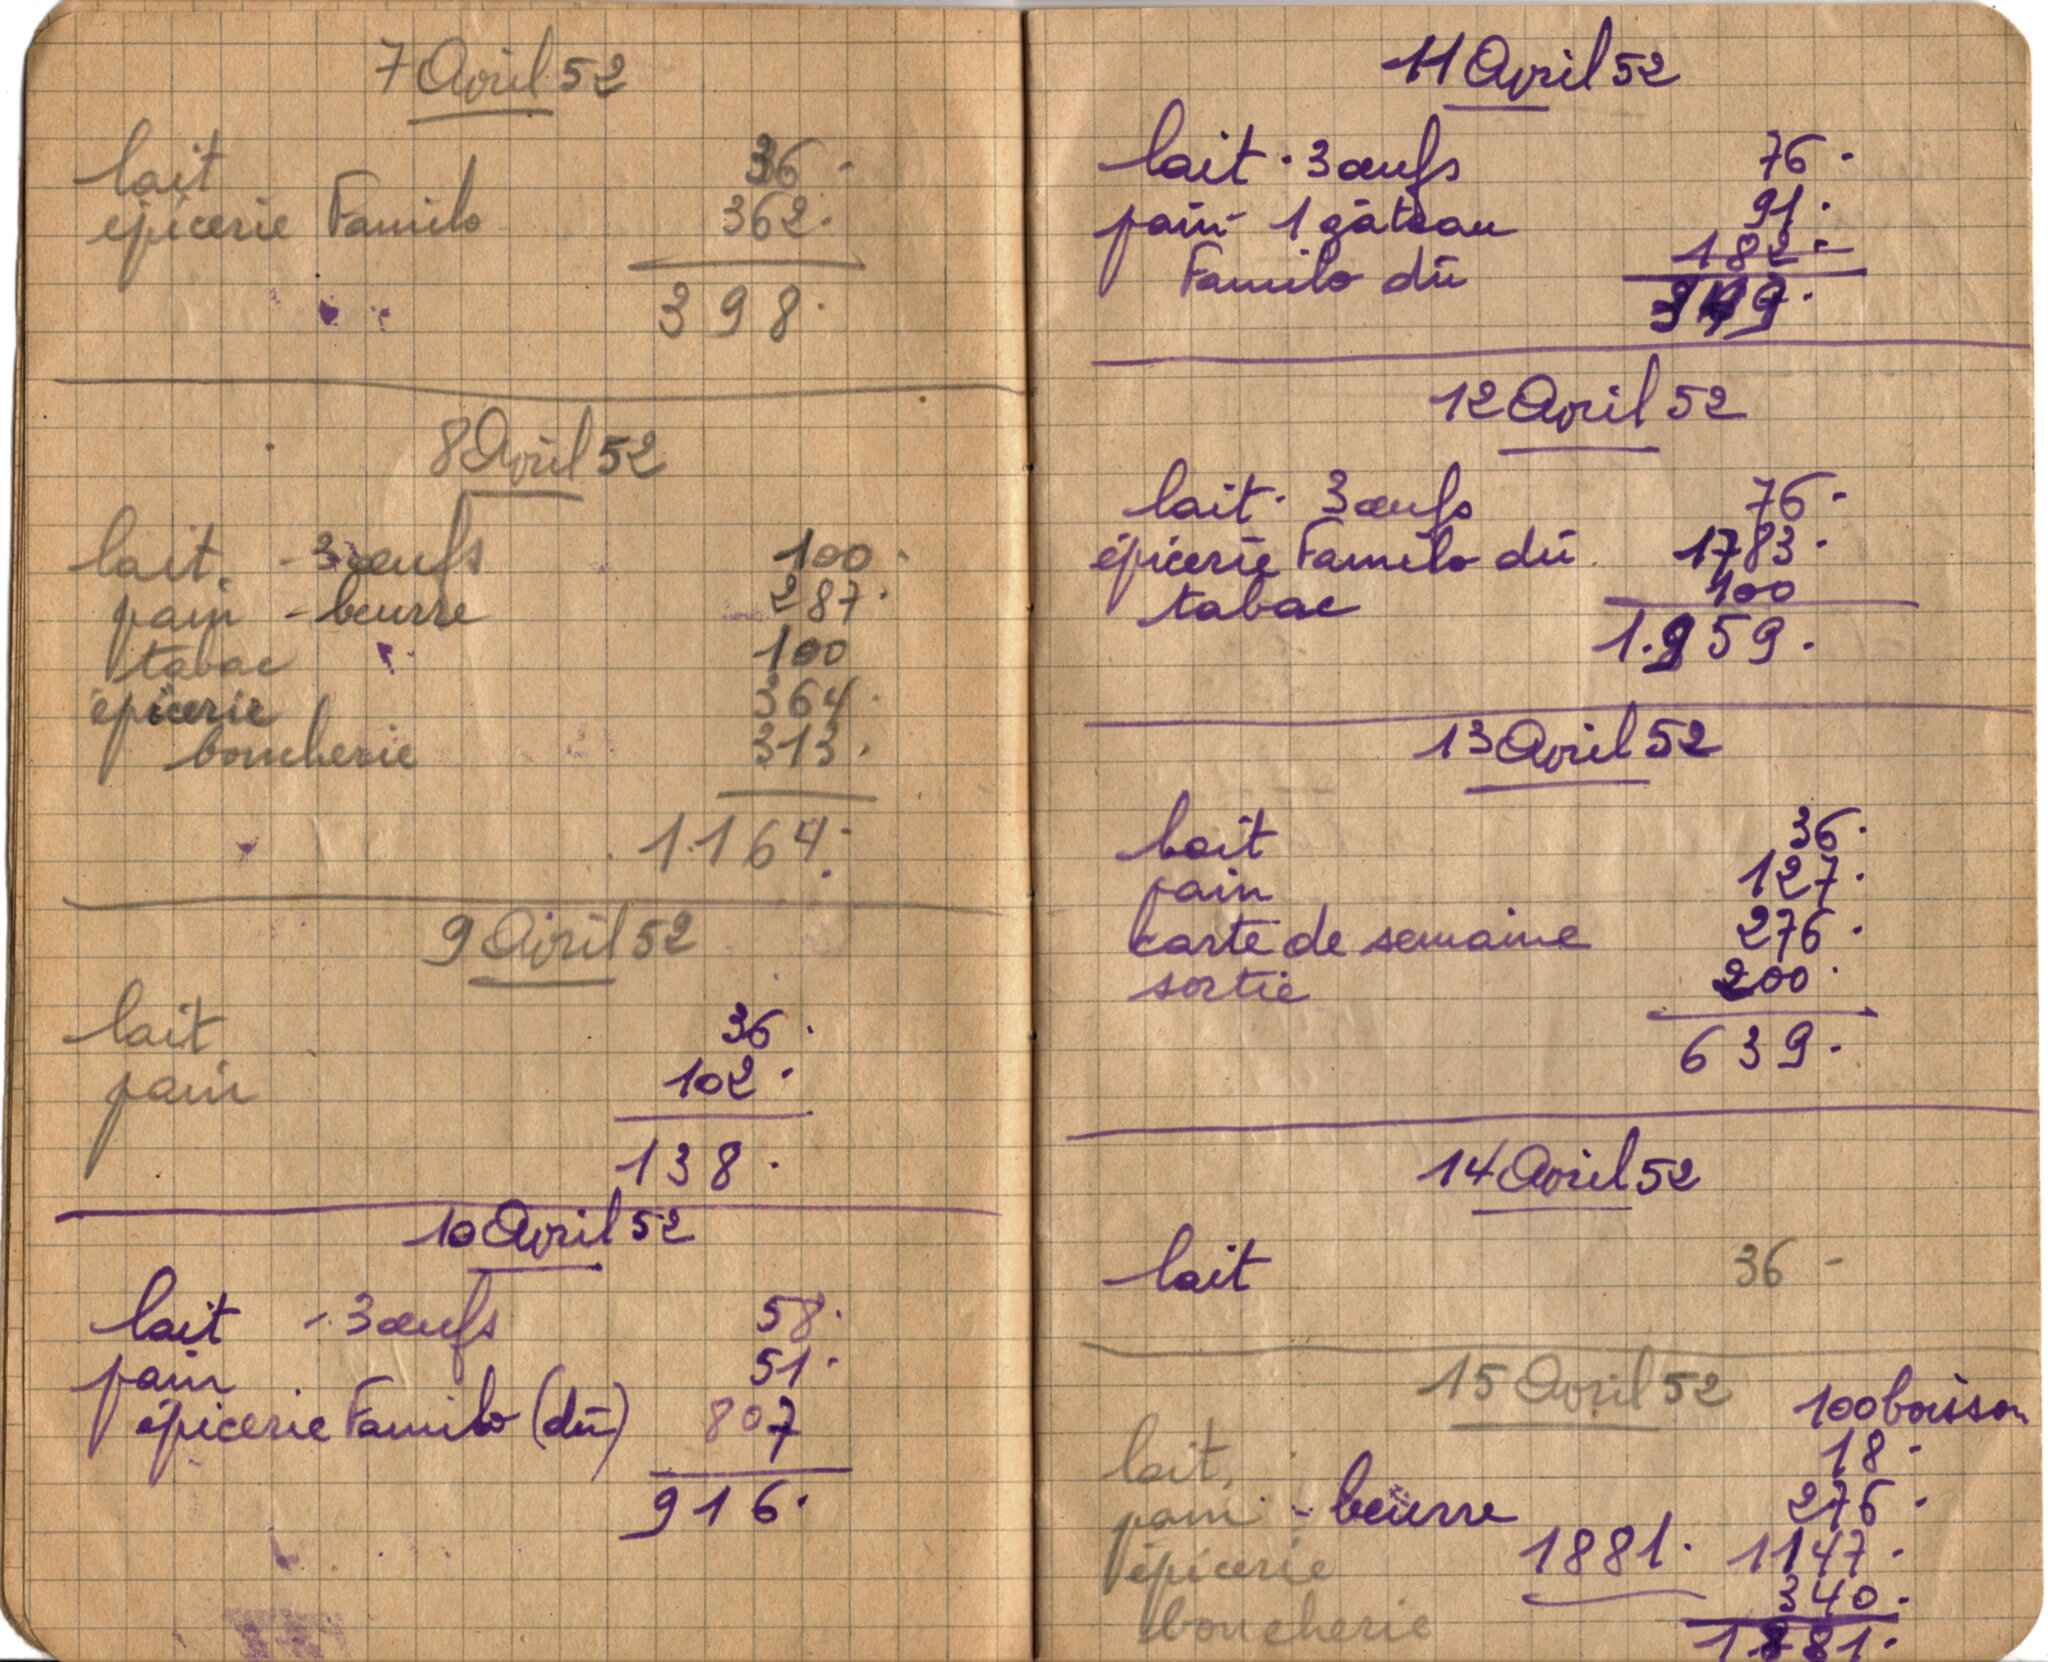 7 Avril 52
lait 36.
épicerie Familo 362.
398.
8 Avril 52
lait. - 3 œufs 100.
pain - beurre 287.
tabac 100
épicerie 364.
boucherie 313.
1.164.
9 Avril 52
lait 36.
pain 102.
138.
10 Avril 52
lait - 3 œufs 58.
pain 51.
épicerie Familo (dû) 807
916.
11 Avril 52
lait - 3 œufs 76.
pain - 1 gâteau 91.
Familo dû 182.
12 Avril 52
lait - 3 œufs 76.
épicerie Familo dû 1783.
tabac 100
1.959.
13 Avril 52
lait 36.
pain 127.
carte de semaine 276.
sortie 200.
639.
14 Avril 52
lait 36 -
15 Avril 52
100 boisson
lait, 18.
pain - beurre 276.
épicerie 1881. 1147.
boucherie 340.
1881.